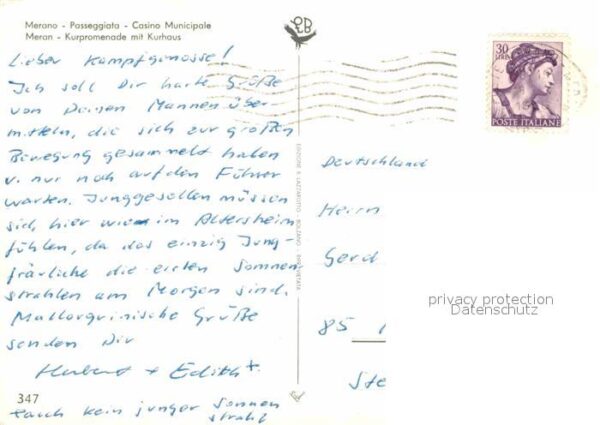 Merano - Passeggiata - Casino Municipale
Meran - Kurpromenade mit Kurhaus
Lieber Kampfgenosse!
Ich soll Dir harte Grüße
von Deinen Mannen über
mitteln, die sich zur großen
Bewegung gesammelt haben
u. nur noch auf den Führer
warten. Junggesellen müssen
sich hier wie im Altersheim
fühlen, da das einzig Jung-
fräuliche die ersten Sonnen
strahlen am Morgen sind.
Mallorquinische Grüße
senden Dir
Herbert + Edith +
347
+auch kein junger Sonnen
strahl
30
LIRE
POSTE ITALIANE
BOLZANO
Deutschland
Herrn
Gerd
85
Ste
privacy protection
Datenschutz